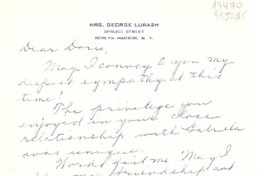 17470
MRS. GEORGE LUBASH
ROSLYN HARBOR, N. Y.
Dear Doris,
May I convey to you my
deepest sympathy at this
time!
The privilege you
enjoyed in your close
relationship with Gabriela
was unique.
Words fail me. May I
friendship and